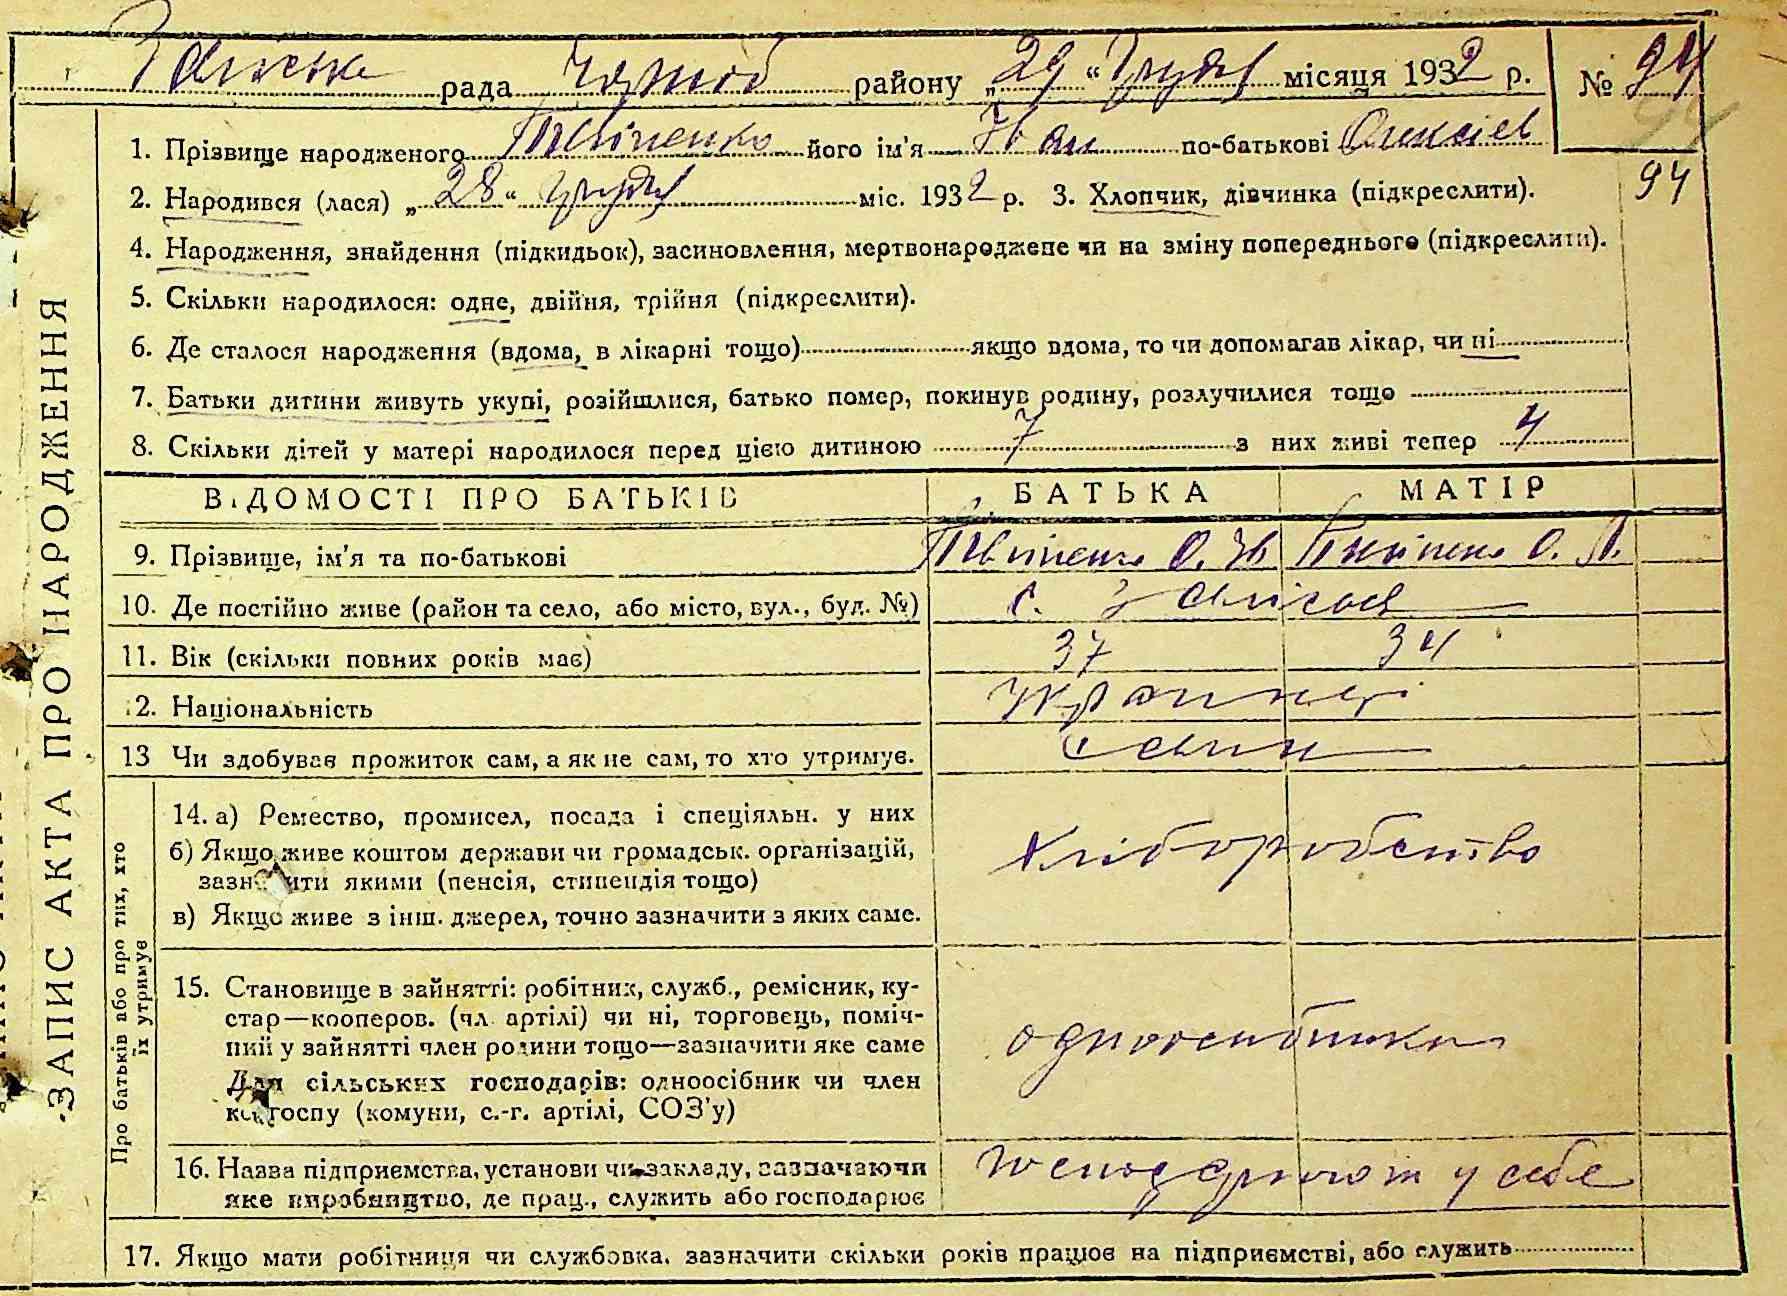 рада района району „29“ Грудня місяця 1932 р. № 94
94
1. Прізвище народженого його ім'я Іван по-батькові Олексієв
2. Народився (лася) „28“ Грудня міс. 1932 р. 3. Хлопчик, дівчинка (підкреслити). 94
4. Народження, знайдення (підкидьок), засиновлення, мертвонароджене чи на зміну попереднього (підкреслити).
5. Скільки народилося: одне, двійня, трійня (підкреслити).
6. Де сталося народження (вдома, в лікарні тощо) якщо вдома, то чи допомагав лікар, чи ні
7. Батьки дитини живуть укупі, розійшлися, батько помер, покинув родину, розлучилися тощо
8. Скільки дітей у матері народилося перед цією дитиною 7 з них живі тепер 4
ВІДОМОСТІ ПРО БАТЬКІВ БАТЬКА МАТІР
9. Прізвище, ім'я та по-батькові О. Ів О.
10. Де постійно живе (район та село, або місто, вул., буд. №) с.
11. Вік (скільки повних років має) 37 34
12. Національність Українці
13 Чи здобуває прожиток сам, а як не сам, то хто утримує. Сами
14. а) Ремество, промисел, посада і спеціяльн. у них
б) Якщо живе коштом держави чи громадськ. організацій,
зазначити якими (пенсія, стипендія тощо)
в) Якщо живе з інш. джерел, точно зазначити з яких саме.
Хліборобство
15. Становище в зайнятті: робітник, служб., ремісник, ку-
стар—кооперов. (чл. артілі) чи ні, торговець, поміч-
ний у зайнятті член родини тощо—зазначити яке саме
Для сільських господарів: одноосібник чи член
колгоспу (комуни, с.-г. артілі, СОЗ'у)
одноосібники
16. Назва підприємства, установи чи закладу, зазначаючи
яке виробництво, де прац., служить або господарює
у себе
17. Якщо мати робітниця чи службовка, зазначити скільки років працює на підприємстві, або служить
ЗАПИС АКТА ПРО НАРОДЖЕННЯ
Про батьків або про тих, хто
їх утримує